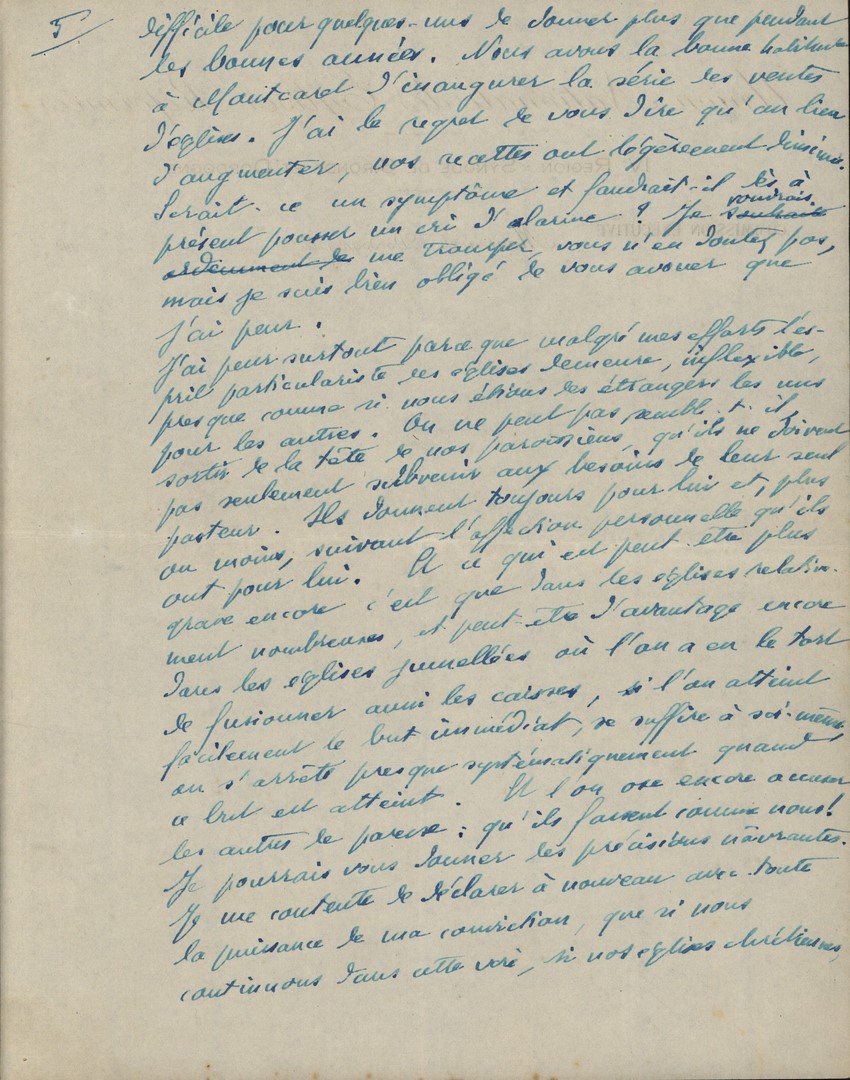 5
difficile pour quelques-uns de donner plus que pendant
les bonnes années. Nous avons la bonne habitude
à Montcaret d'inaugurer la série des ventes
d'églises. J'ai le regret de vous dire qu'au lieu
d'augmenter, nos recettes ont légèrement diminué.
Serait-ce un symptôme et faudrait-il dès à
présent pousser un cri d'alarme ? Je souhaite voudrais
ardemment de me tromper, vous n'en doutez pas,
mais je suis bien obligé de vous avouer que
j'ai peur.
J'ai peur surtout parce que malgré mes efforts l'es-
prit particulariste des églises demeure, inflexible,
presque comme si nous étions des étrangers les uns
pour les autres. On ne peut pas, semble-t-il,
sortir de la tête de nos paroissiens, qu'ils ne doivent
pas seulement subvenir aux besoins de leur seul
pasteur. Ils donnent toujours pour lui et, plus
ou moins, suivant l'affection personnelle qu'ils
ont pour lui. Et ce qui est peut-être plus
grave encore c'est que dans les églises relative-
ment nombreuses, et peut-être d'avantage encore
dans les églises jumellées où l'on a eu le tort
de fusionner aussi les caisses, si l'on atteint
facilement le but immédiat, se suffire à soi-même,
on s'arrête presque systématiquement quand
ce but est atteint. Et l'on ose encore accuser
les autres de paresse : qu'ils fassent comme nous!
Je pourrais vous donner des précisions navrantes.
Je me contente de déclarer à nouveau avec toute
la puissance de ma conviction, que si nous
continuons dans cette voie, si nos églises chrétiennes,